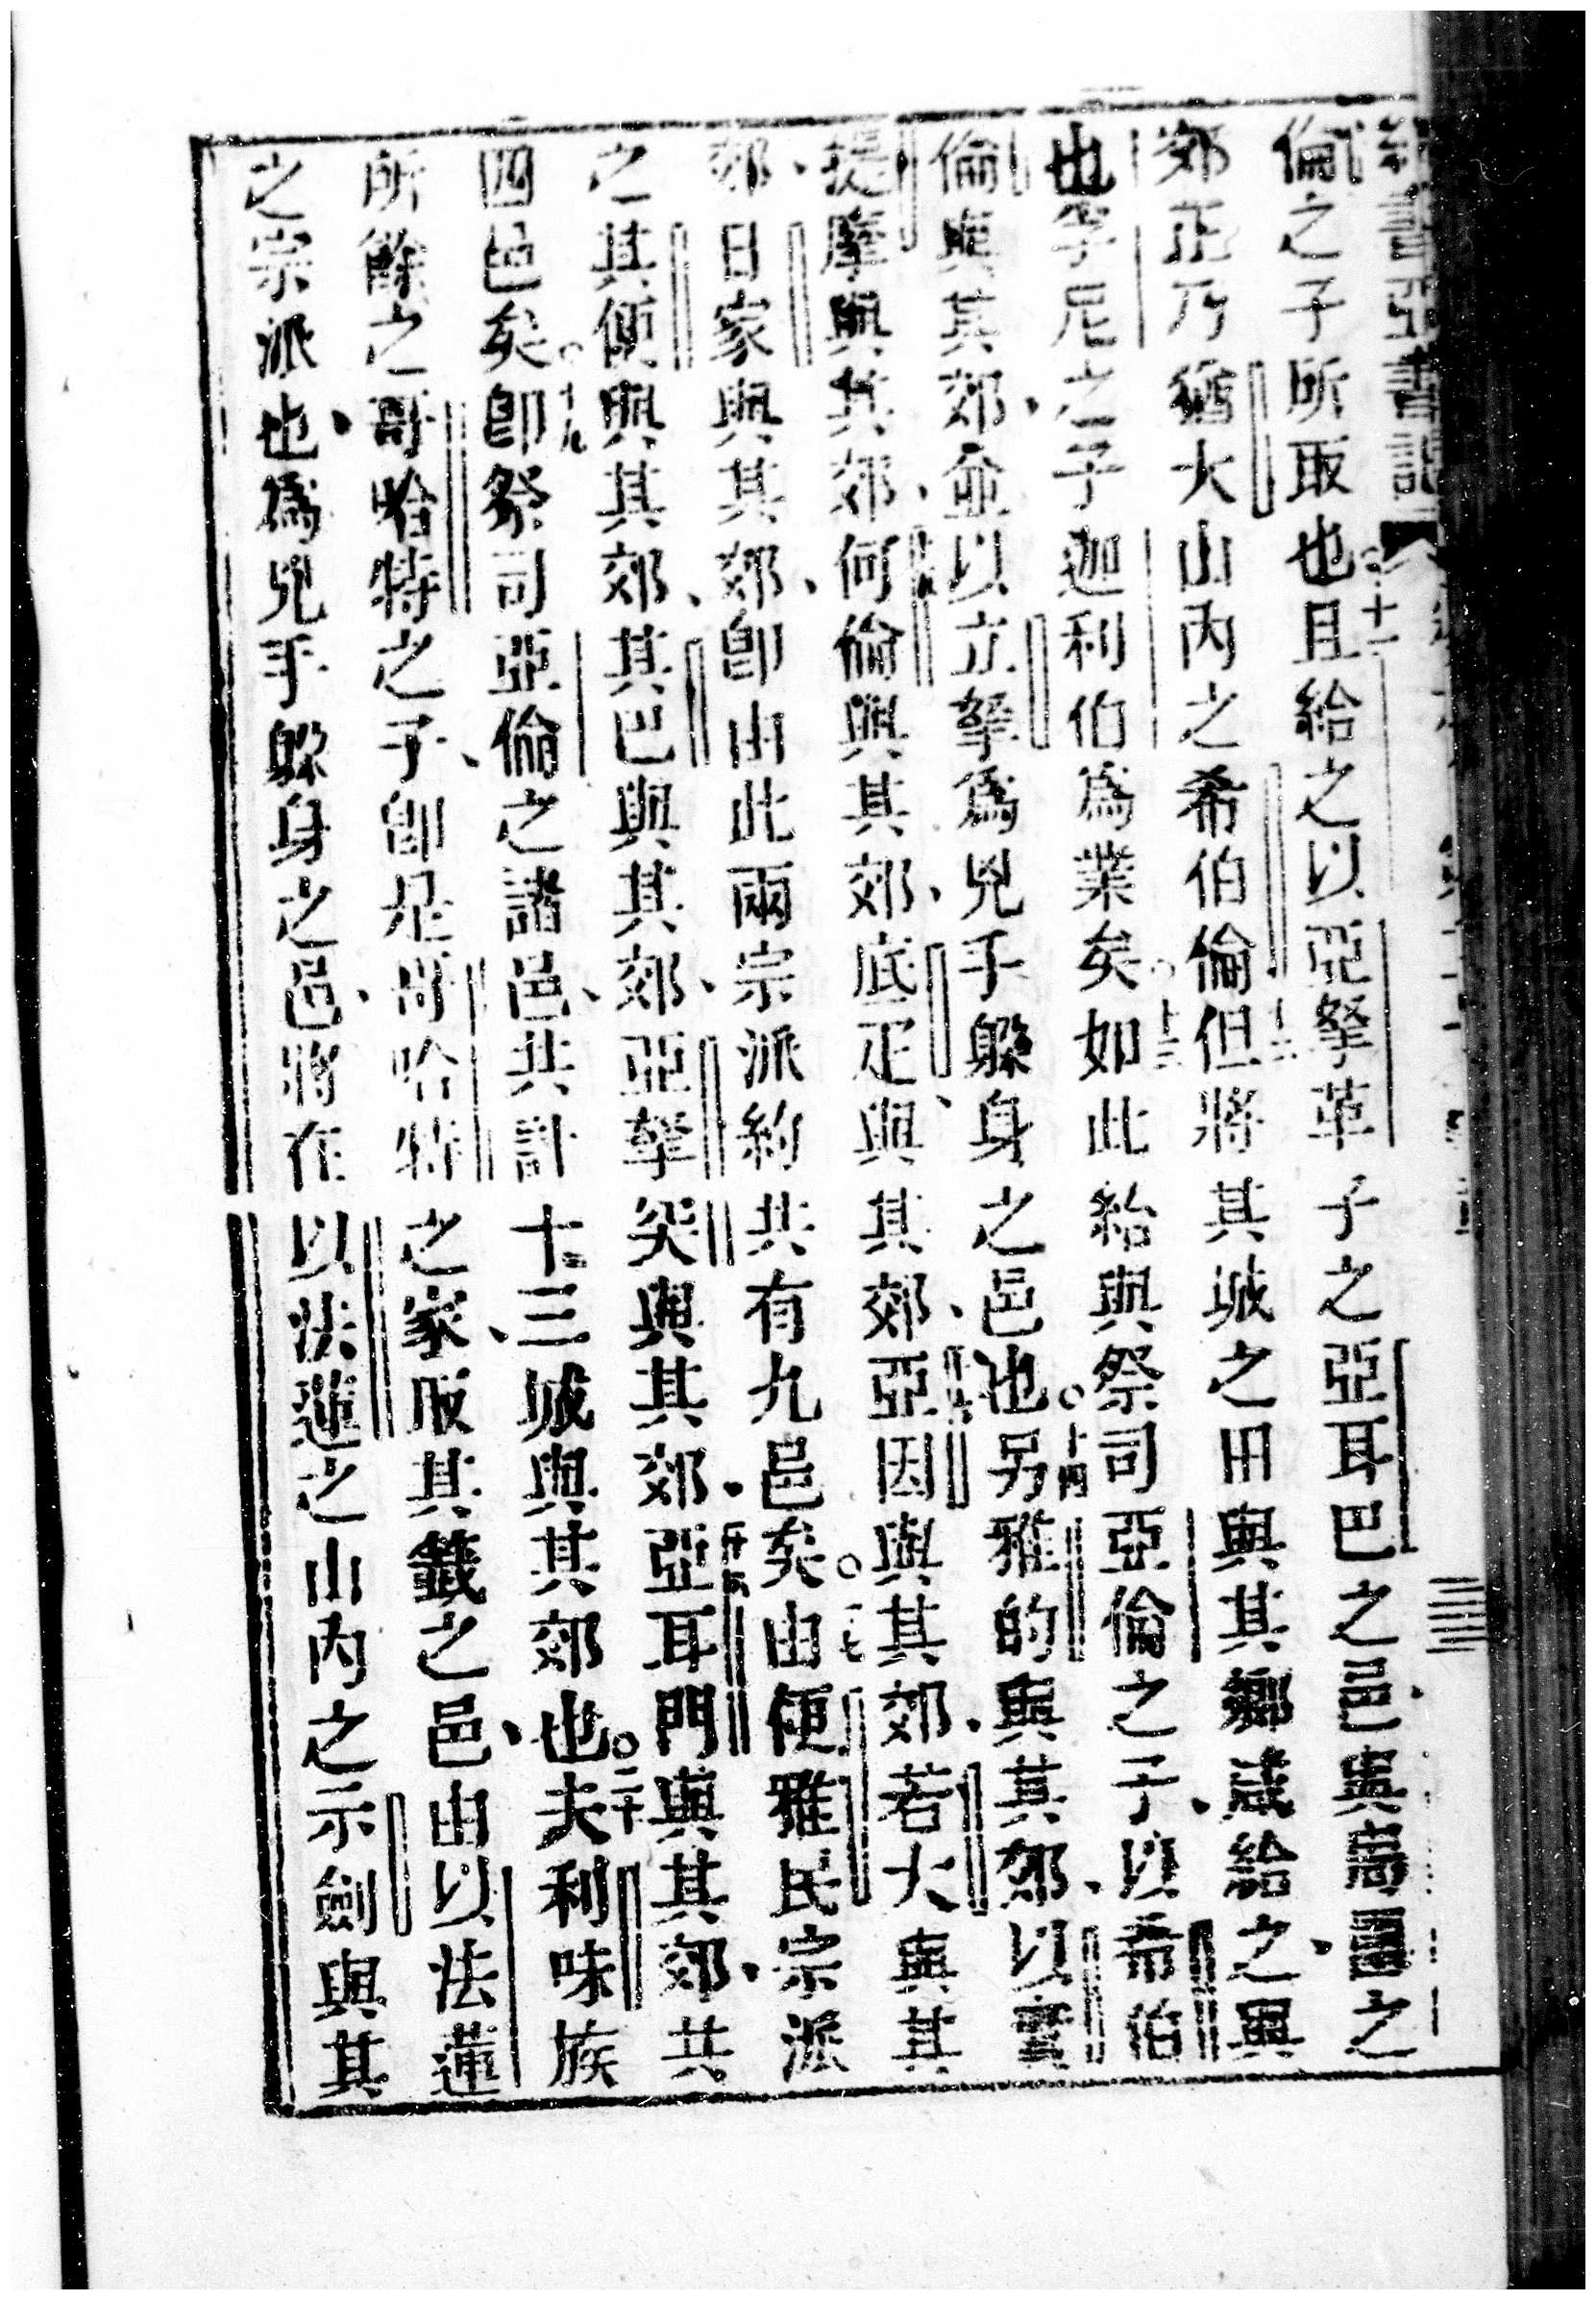 倫之子所取也且給之以亞拏革子之亞耳巴之邑與之
郊正乃猶大山內之希伯倫但將其城之田與其鄉歲給之與
也孚尼之子迦利伯為業矣。如此給與祭司亞倫之子、以希伯
倫與其郊、並以立拏為兇手躲身之邑也。另雅的與其郊、以
提摩與其郊、何倫與其郊、底疋與其郊、亞因與其郊、若大與其
郊、日家與其郊、即由此兩宗派約共有九邑矣。由便雅民宗派
之其便與其郊、其巴與其郊、亞拏突與其郊、亞耳門與其郊、共
四邑矣。即祭司亞倫之諸邑、共計十三城與其郊也。夫利味族
所餘之哥哈特之子、即是哥哈特之家、厫其籤之邑、由以法蓮
之宗派也、為兇手躲身之邑、將在以法蓮之山內之示劍與其